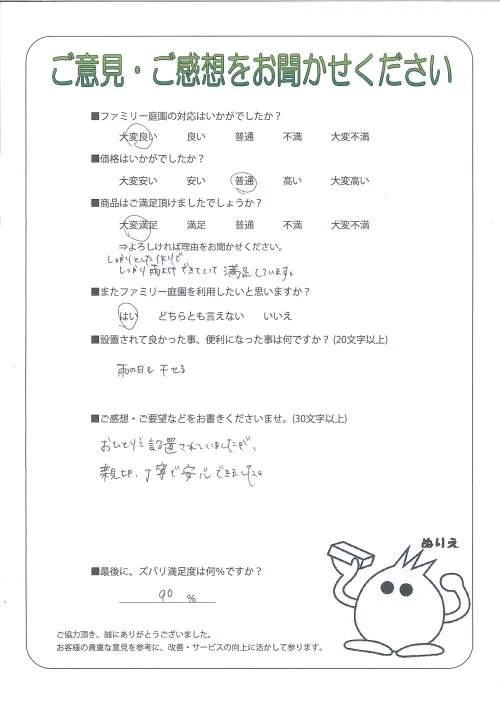 ご意見・ご感想をお聞かせください
■ファミリー庭園の対応はいかがでしたか？
大変良い 良い 普通 不満 大変不満
■価格はいかがでしたか？
大変安い 安い 普通 高い 大変高い
■商品はご満足頂けましたでしょうか？
大変満足 満足 普通 不満 大変不満
⇒よろしければ理由をお聞かせください。
しっかりとした作りで
しっかり雨よけできていて 満足しています。
■またファミリー庭園を利用したいと思いますか？
はい どちらとも言えない いいえ
■設置されて良かった事、便利になった事は何ですか？(20文字以上)
雨の日も干せる
■ご感想・ご要望などをお書きくださいませ。(30文字以上)
おひとりで設置されていましたが、
親切、丁寧で安心できました。
ぬりえ
■最後に、ズバリ満足度は何%ですか？
90 %
ご協力頂き、誠にありがとうございました。
お客様の貴重な意見を参考に、改善・サービスの向上に活かして参ります。